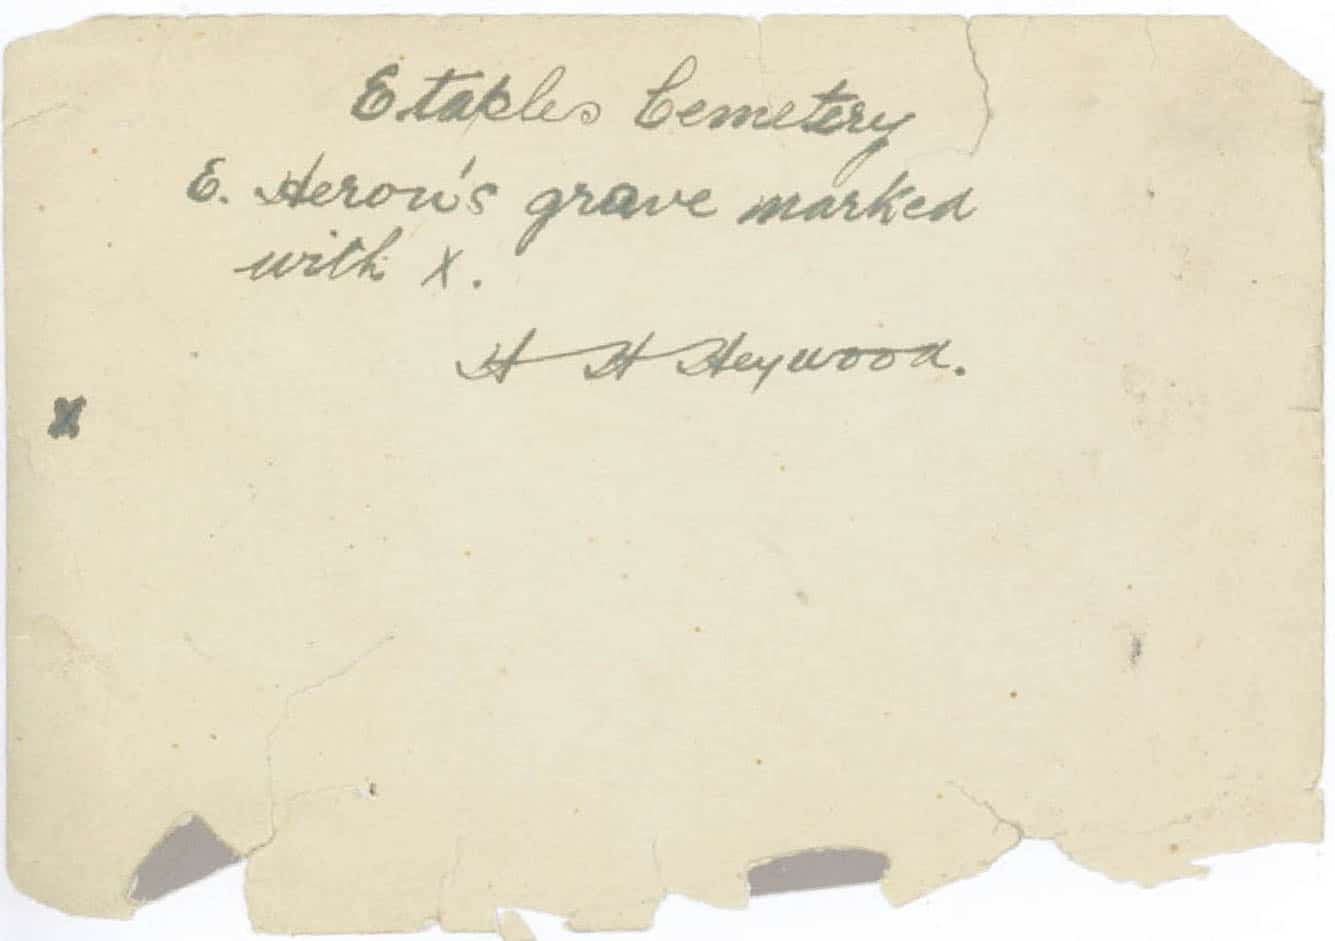 Etaples Cemetery
E. Heron's grave marked
with x.
H H Heywood.
X